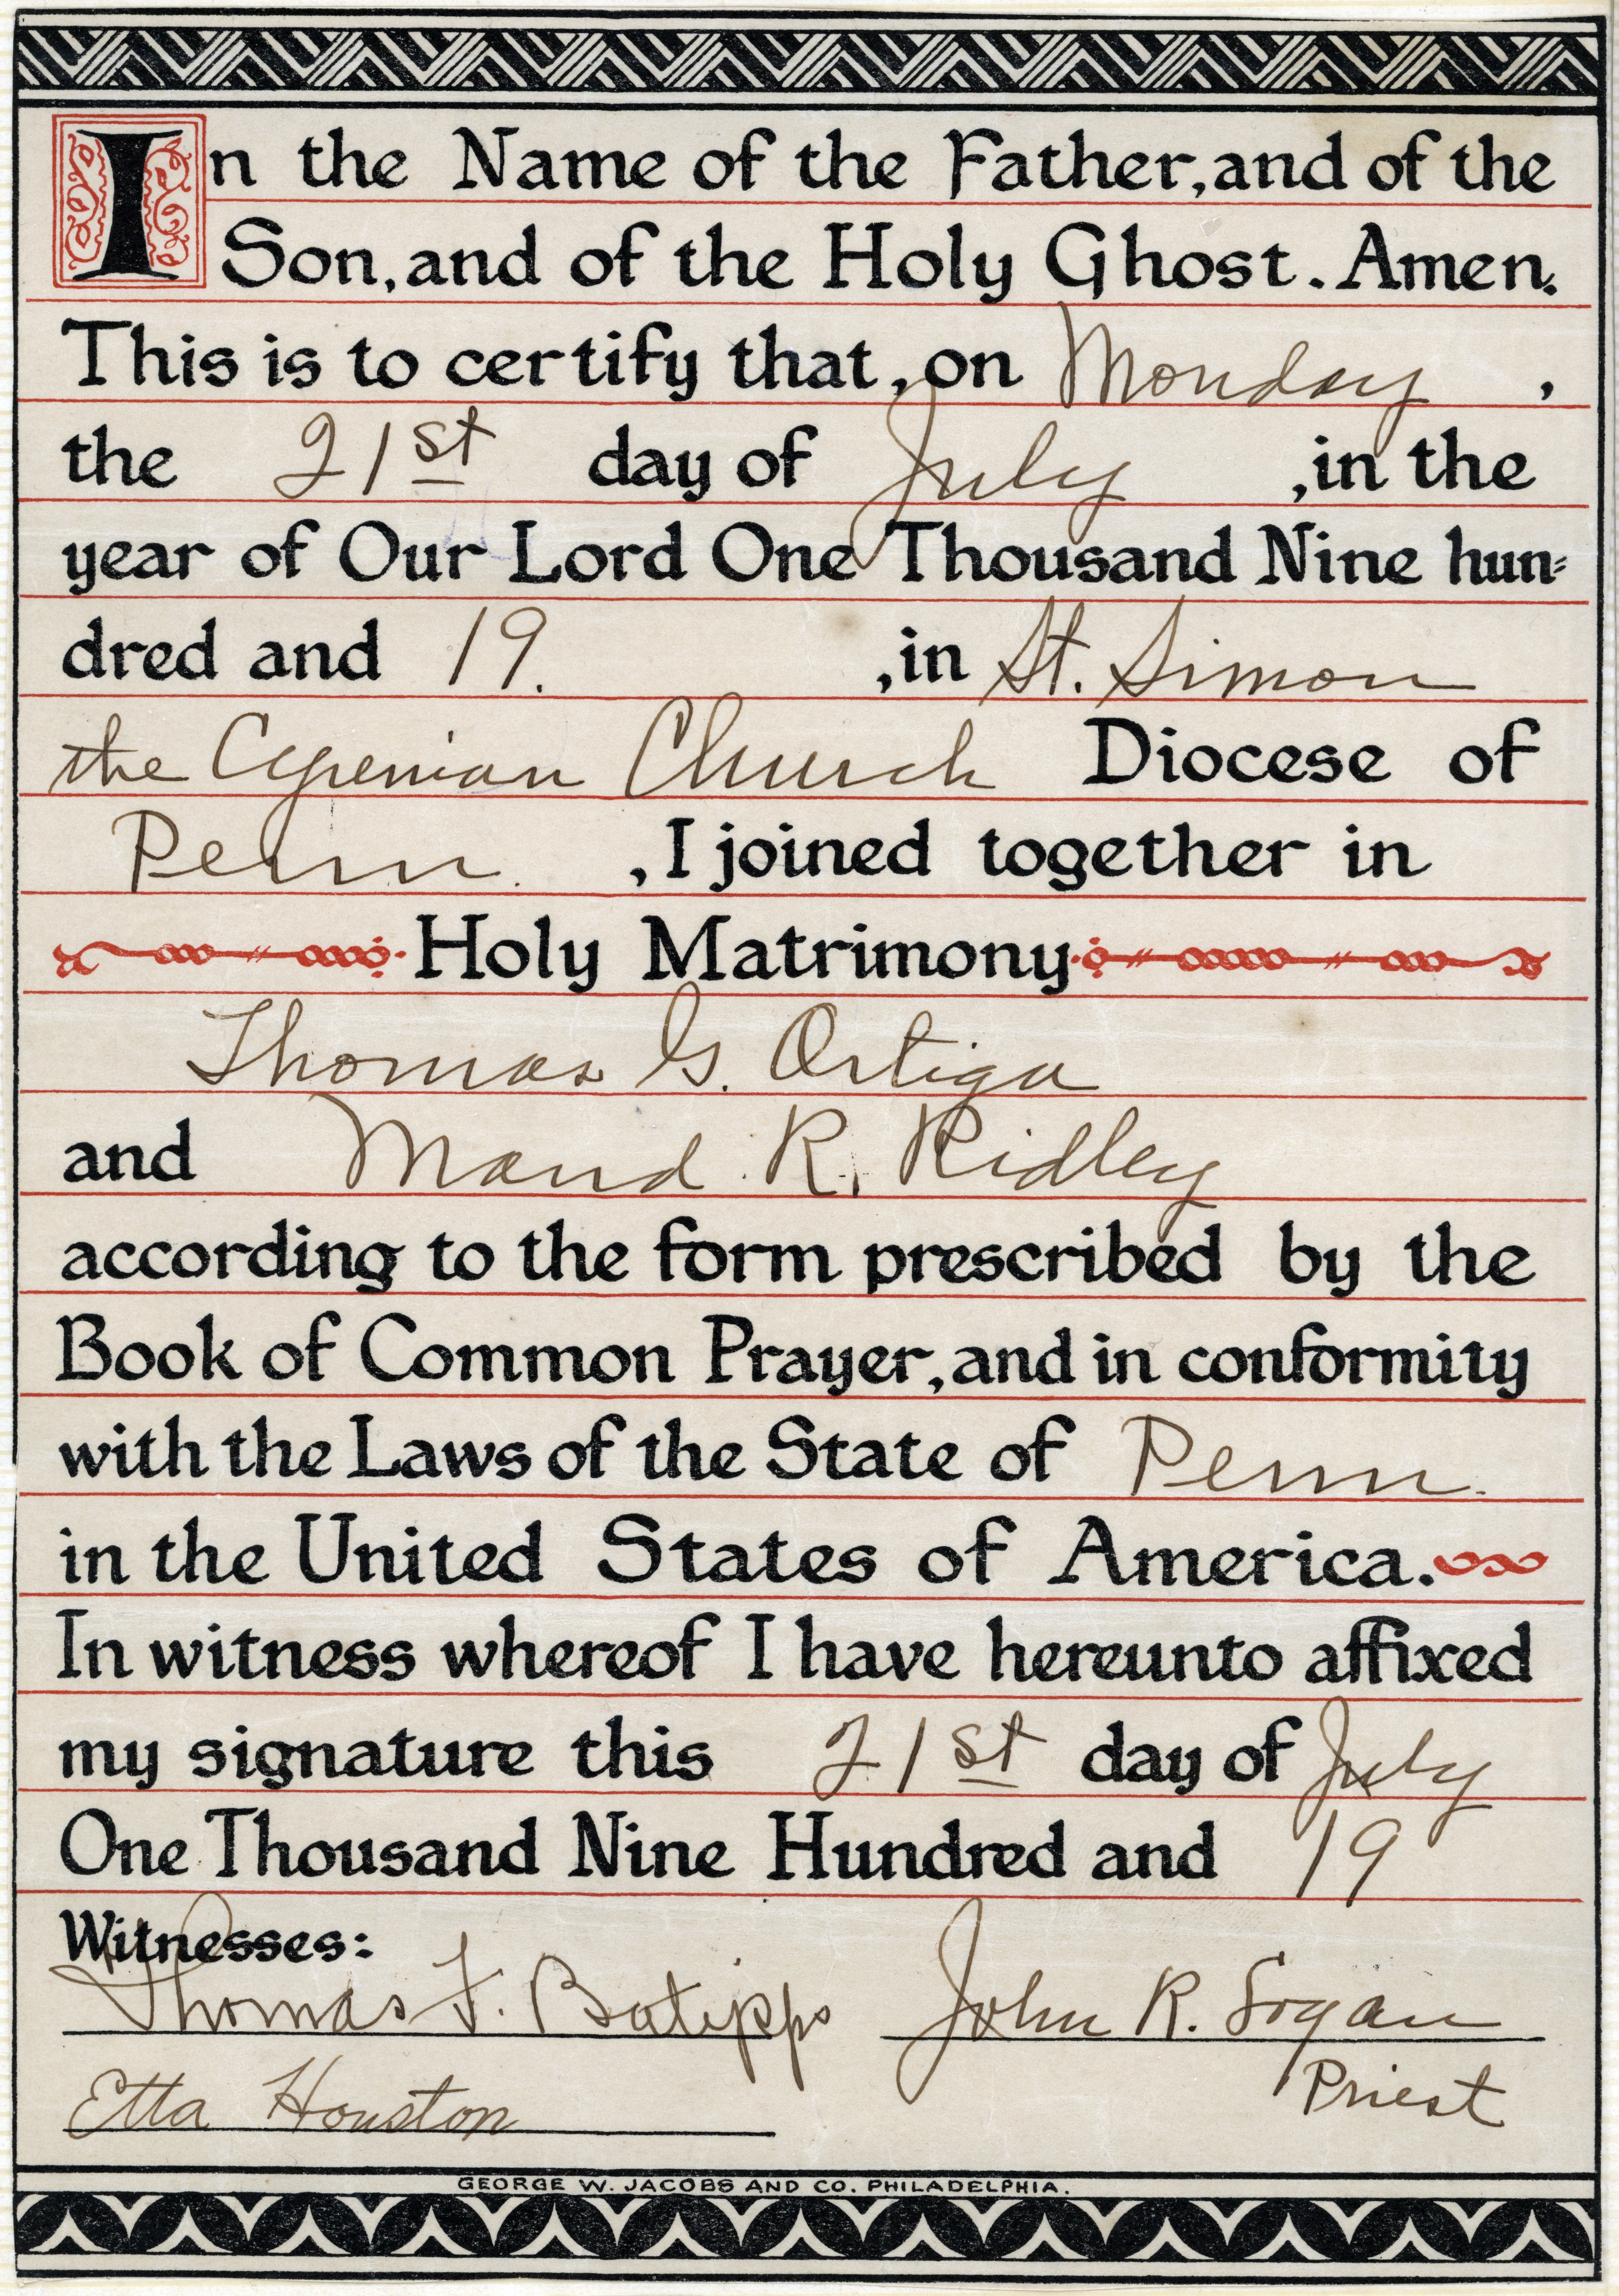 In the Name of the Father, and of the
Son, and of the Holy Ghost. Amen.
This is to certify that, on Monday,
the 21st day of July, in the
year of Our Lord One Thousand Nine hun=
dred and 19., in St. Simon
the Cyrenian Church Diocese of
Penn., I joined together in
Holy Matrimony
Thomas G. Ortiga
and Maud R. Ridley
according to the form prescribed by the
Book of Common Prayer, and in conformity
with the Laws of the State of Penn.
in the United States of America.
In witness whereof I have hereunto affixed
my signature this 21st day of July
One Thousand Nine Hundred and 19
Witnesses:
Thomas F. Batipps John R. Logan
Etta Houston Priest
GEORGE W. JACOBS AND CO. PHILADELPHIA.